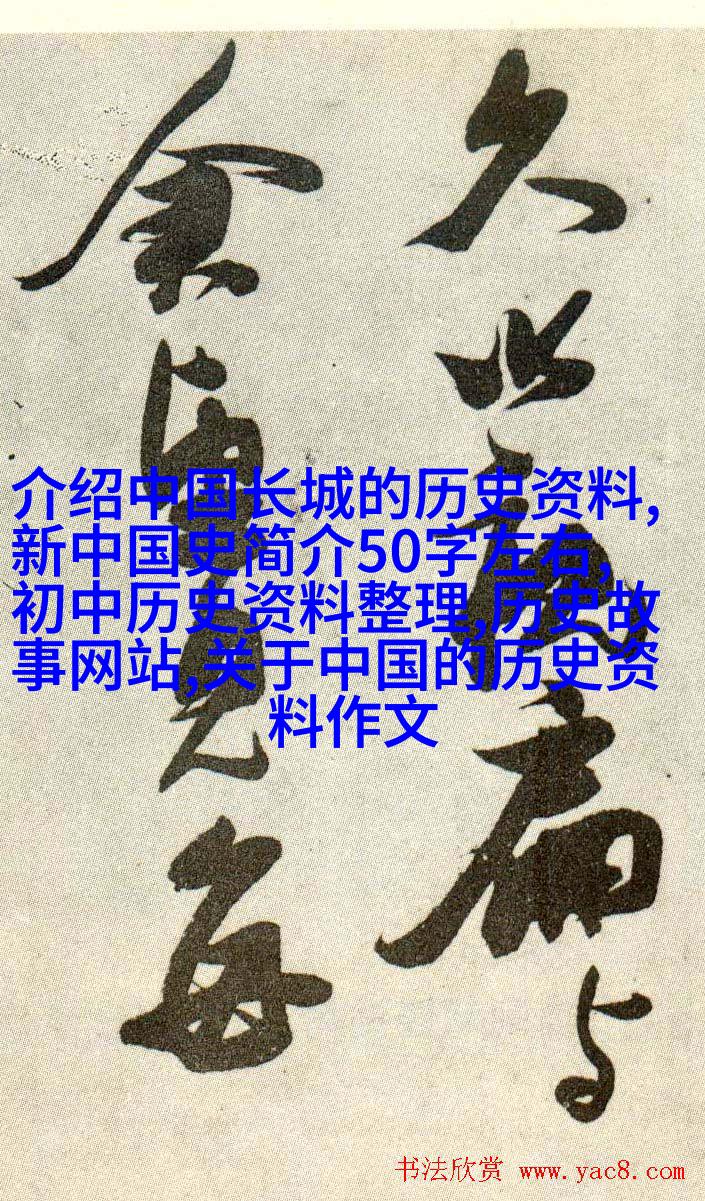 久此被病与
余酒見每
介绍中国长城的历史资料,
新中国史简介50字左右,
初中历史资料整理,历史故
事网站,关于中国的历史资
料作文
书法欣赏 www.yac8.com